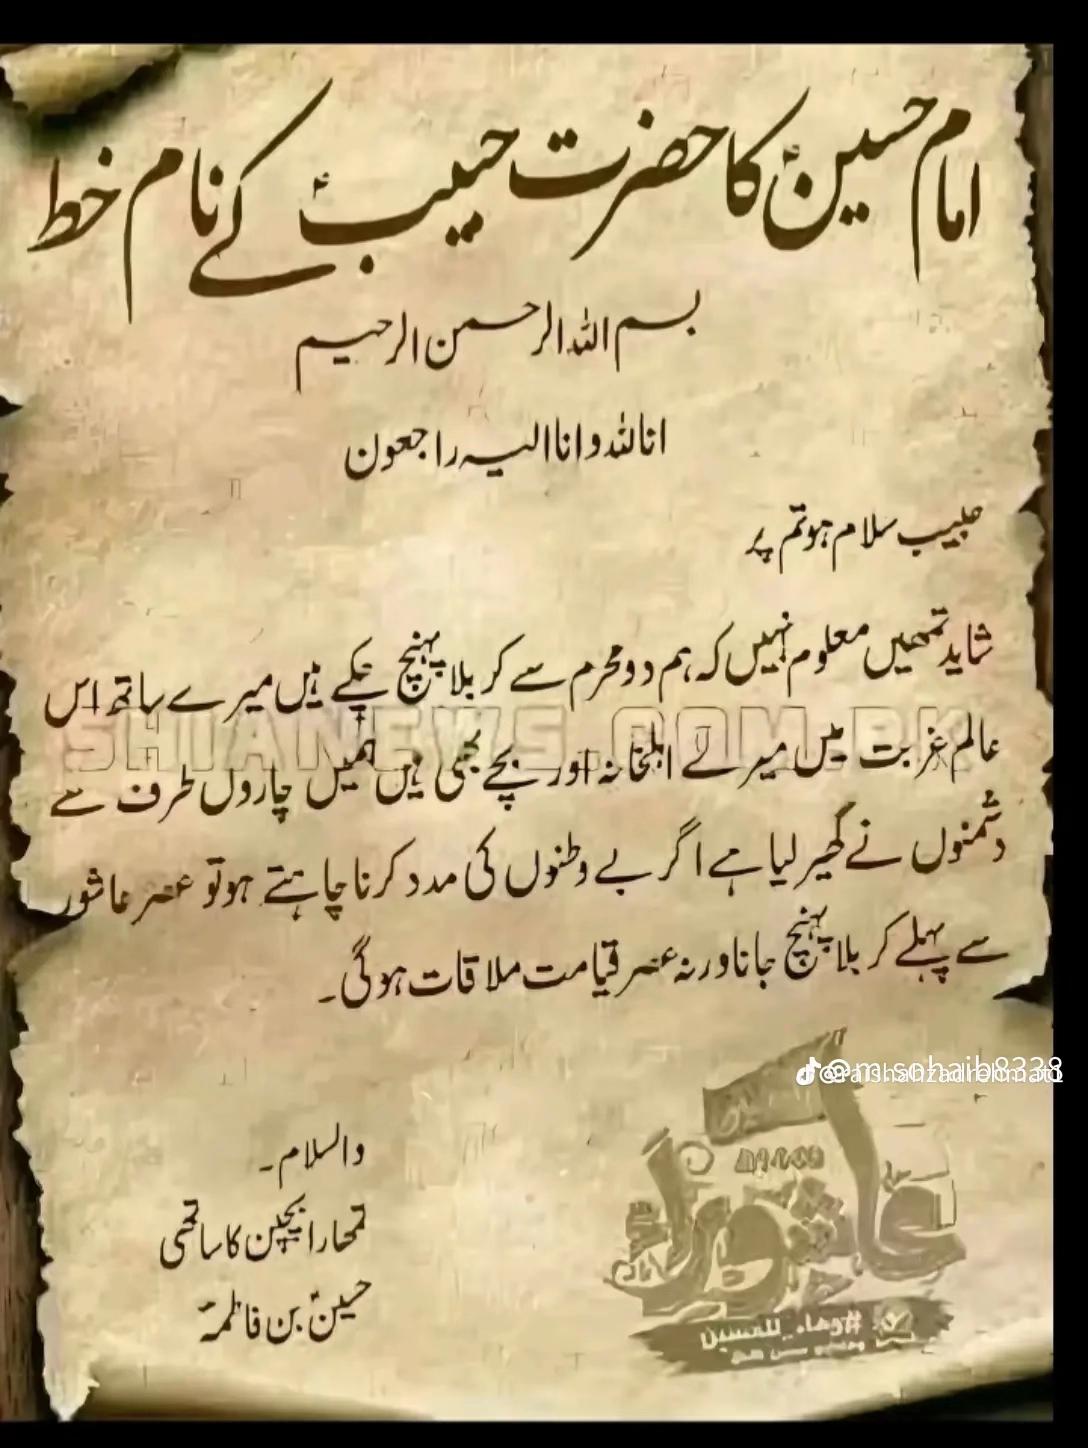 امام حسینؑ کا حضرت حبیبؑ کے نام خط
بسم اللہ الرحمن الرحیم
انا للہ و انا الیہ راجعون
حبیب سلام ہو تم پر
شاید تمھیں معلوم نہیں کہ ہم دو محرم سے کربلا پہنچ چکے ہیں میرے ساتھ اس
عالم غربت میں میرے اہلخانہ اور بچے بھی ہیں ہمیں چاروں طرف سے
دشمنوں نے گھیر لیا ہے اگر بے وطنوں کی مدد کرنا چاہتے ہو تو عصر عاشور
سے پہلے کربلا پہنچ جانا ورنہ عصر قیامت ملاقات ہوگی۔
SHIANEWS.COM.PK
@m.sohaib8338
والسلام۔
تمھارا بچپن کا ساتھی
حسینؑ بن فاطمہؑ
عاشورا